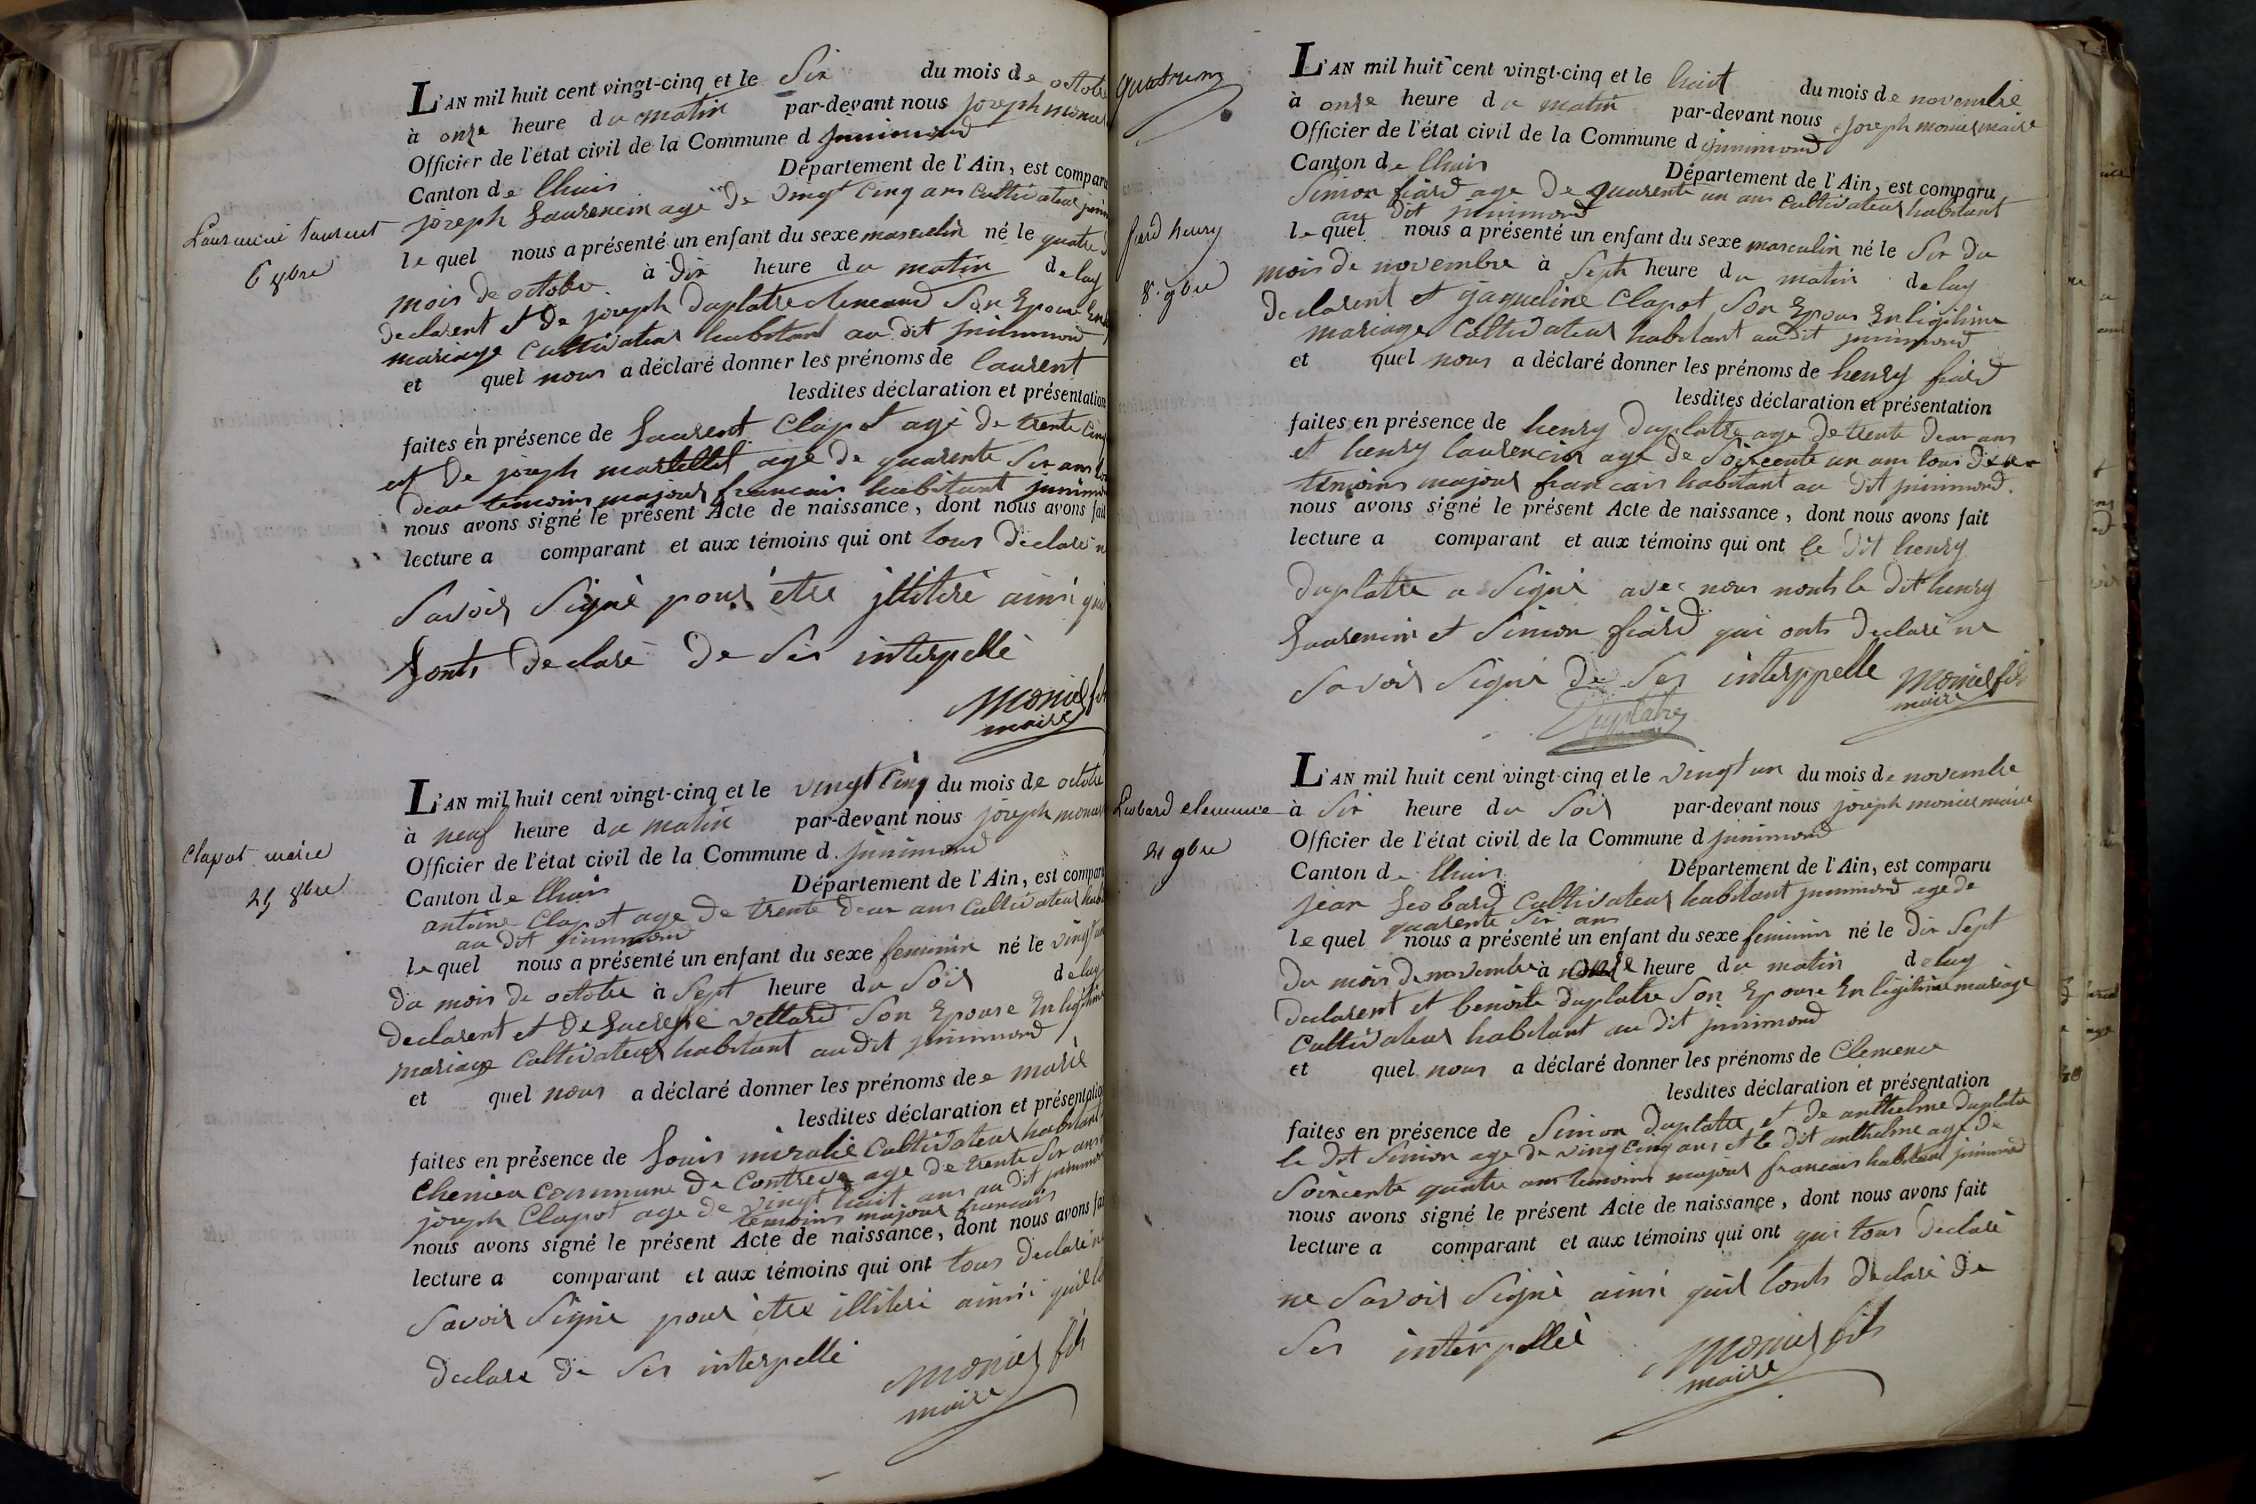 Laurencin laurent
6 8bre
L'AN mil huit cent vingt-cinq et le Six du mois de octobre
à onze heure du matin par-devant nous joseph monier
Officier de l'état civil de la Commune d prémimond
Canton de lhuis Département de l'Ain, est comparu
joseph Laurencin agé de vingt cinq ans cultivateur
le quel nous a présenté un enfant du sexe masculin né le quatre
mois de octobre à dix heure du matin de luy
declarent et de joseph duplatre son Epouse En
mariage cultivateur habitant au dit
et quel nous a déclaré donner les prénoms de laurent
lesdites déclaration et présentation
faites en présence de Laurent Clapot agé de trente cinq
et de joseph martellet age de quarente Six ans
deux temoins majour francais habitant
nous avons signé le présent Acte de naissance, dont nous avons fait
lecture a comparant et aux témoins qui ont tous declaré ne
Savoir Signé pour être jllitéré ainsi
Lonts declaré de Ses interpellé
Monier fils
maire
Clapot marie
25 8bre
L'AN mil huit cent vingt-cinq et le vingt cinq du mois de octobre
à neuf heure du matin par-devant nous joseph monier
Officier de l'état civil de la Commune d
Canton de lhuis Département de l'Ain, est comparu
antoine Clapot age de trente deux ans Cultivateur
au dit
le quel nous a présenté un enfant du sexe feminin né le vingt
du mois de octobre à Sept heure du Soir de luy
declarent et de Lucresse vettard Son Epouse En legitime
mariage Cultivateur habitant au dit
et quel nous a déclaré donner les prénoms de marie
lesdites déclaration et présentation
faites en présence de Louis Cultivateur habitant
commune de Contrevoz age de trente Six ans
joseph Clapot age de vingt huit ans au dit
temoins majour francais
nous avons signé le présent Acte de naissance, dont nous avons fait
lecture a comparant et aux témoins qui ont tous declaré ne
Savoir Signé pour être illitéré ainsi
declaré de Ses interpellé
Monier fils
maire
fiard henry
8. 9bre
L'AN mil huit cent vingt-cinq et le huit du mois de novembre
à onze heure du matin par-devant nous joseph monier maire
Officier de l'état civil de la Commune d
Canton de lhuis Département de l'Ain, est comparu
Simon fiard age de quarente un ans cultivateur habitant
au dit
le quel nous a présenté un enfant du sexe masculin né le Six du
mois de novembre à Sept heure du matin de luy
declarent et jaqueline Clapot Son Epouse En legitime
mariage Cultivateur habitant au dit
et quel nous a déclaré donner les prénoms de henry fiard
lesdites déclaration et présentation
faites en présence de henry duplatre age de trente deux ans
et henry laurencin age de Soixcente un ans tous deux
temoins majour francais habitant au dit
nous avons signé le présent Acte de naissance, dont nous avons fait
lecture a comparant et aux témoins qui ont le dit henry
duplatre a Signé avec nous nonts le dit henry
Laurencin et Simon fiard qui onts declaré ne
Savoir Signé de Ses interppelle
Monier fils
maire
Duplatre
Leobard clemence
21 9bre
L'AN mil huit cent vingt-cinq et le vingt un du mois de novembre
à Six heure du Soir par-devant nous joseph monier maire
Officier de l'état civil de la Commune d
Canton de lhuis Département de l'Ain, est comparu
jean Leobard Cultivateur habitant age de
quarente Six ans
le quel nous a présenté un enfant du sexe feminin né le dix Sept
du mois de novembre à heure du matin de luy
declarent et benoite duplatre Son Epouse En legitime mariage
Cultivateur habitant au dit
et quel nous a déclaré donner les prénoms de Clemence
lesdites déclaration et présentation
faites en présence de Simon duplatre et de anthelme duplatre
le dit Simon age de vingt cinq ans et le dit anthelme age de
Soixcente quatre ans temoins majour francais habitant
nous avons signé le présent Acte de naissance, dont nous avons fait
lecture a comparant et aux témoins qui ont qui tous declaré
ne Savoir Signé ainsi quil lonts declaré de
Ses interpellé
Monier fils
maire